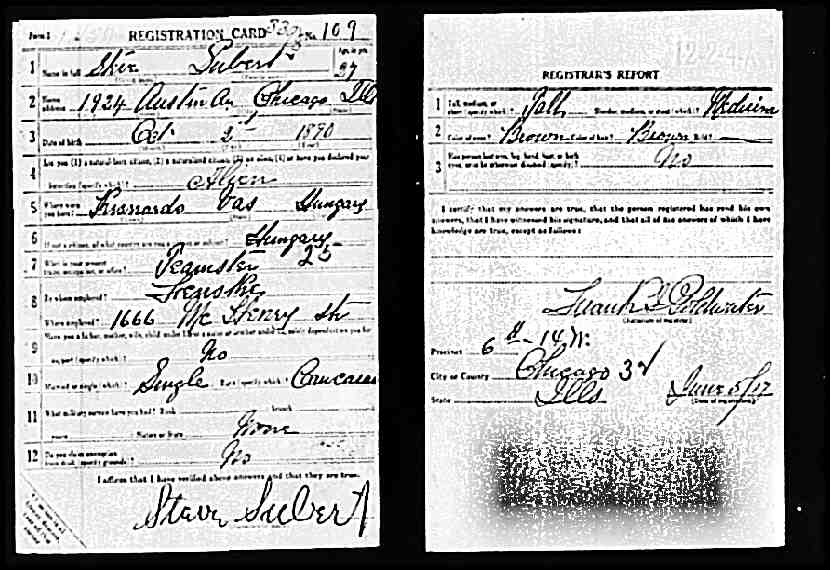 Form 1 REGISTRATION CARD No. 109
1 Name in full Subert Age, in yrs. 27
2 Home address 1924 Austin Av Chicago Ills
3 Date of birth Oct 25 1890
4 Are you (1) a natural-born citizen, (2) a naturalized citizen, (3) an alien, (4) or have you declared your
intention (specify which)? Alien
5 Where were you born? Vas Hungary
6 If not a citizen, of what country are you a citizen or subject? Hungary
7 What is your present trade, occupation, or office? Teamster 25
8 By whom employed?
Where employed? 1666 Mc Henry St
9 Have you a father, mother, wife, child under 12, or a sister or brother under 12, solely dependent on you for
support (specify which)? No
10 Married or single (which)? Single Race (specify which)? Caucasian
11 What military service have you had? Rank branch
years Nation or State None
12 Do you claim exemption from draft (specify grounds)? No
I affirm that I have verified above answers and that they are true.
Steve Subert
REGISTRAR'S REPORT
1 Tall, medium, or short (specify which)? Tall Slender, medium, or stout (which)? Medium
2 Color of eyes? Brown Color of hair? Brown Bald?
3 Has person lost arm, leg, hand, foot, or both eyes, or is he otherwise disabled (specify)? No
I certify that my answers are true, that the person registered has read his own
answers, that I have witnessed his signature, and that all of his answers of which I have
knowledge are true, except as follows:
Frank L Goldwater
(Signature of registrar)
Precinct 6
City or County Chicago
State Ills June 5/17
(Date of registration)